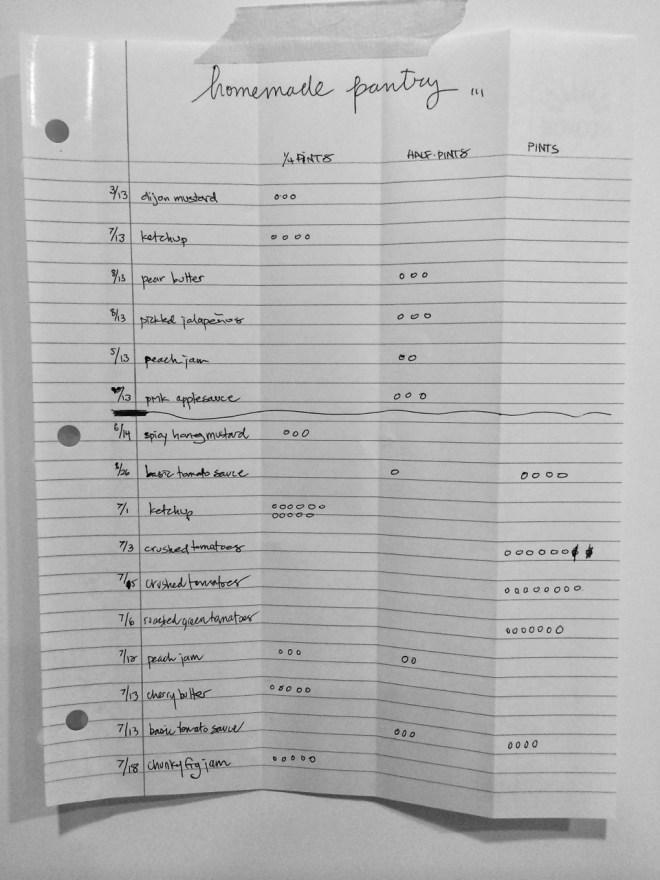 homemade pantry ...
1/4 PINTS HALF-PINTS PINTS
3/13 dijon mustard ooo
7/13 ketchup oooo
8/13 pear butter ooo
8/13 pickled jalapeños ooo
5/13 peach jam oo
/13 pink applesauce ooo
6/14 spicy honey mustard ooo
/26 basic tomato sauce o oooo
7/1 ketchup oooooo
ooooo
7/3 crushed tomatoes oooooo
7/5 crushed tomatoes oooooooo
7/6 roasted green tomatoes ooooooo
7/12 peach jam ooo oo
7/13 cherry butter ooooo
7/13 basic tomato sauce ooo oooo
7/18 chunky fig jam ooooo